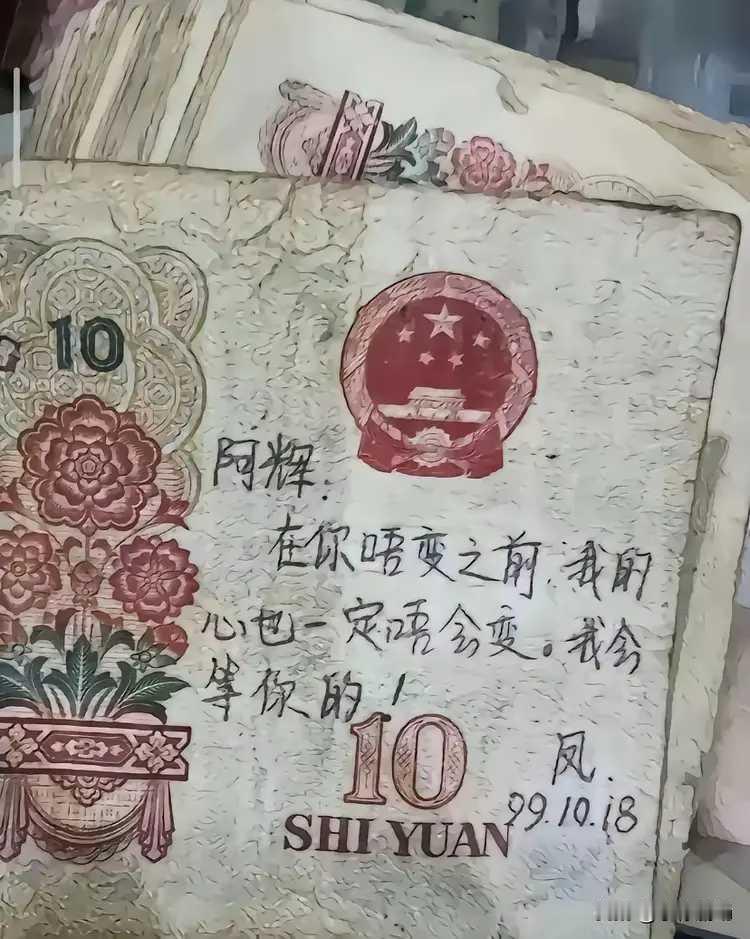 10
阿辉.
在你唔变之前.我的
心也一定唔会变。我会
等你的！
10
SHI YUAN
凤.
99.10.18